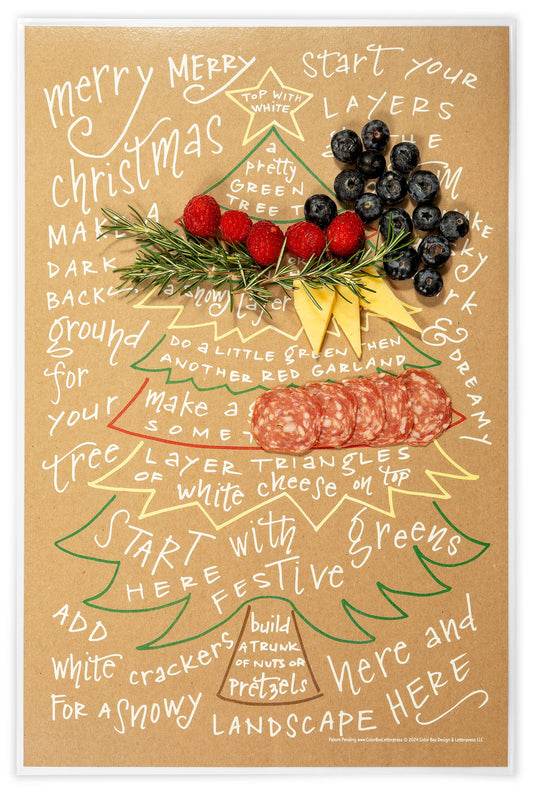 merry MERRY
christmas
start your
LAYERS
THE
MAKE A
DARK
BACK
ground
for
your
tree
TOP WITH
WHITE
a
pretty
GREEN
TREE T
a snowy layer
DO a LITTLE green THEN
ANOTHER RED GARLAND
make a
SOME
LAYER TRIANGLES
OF white cheese on top
START with greens
HERE FESTIVE
& DREAMY
build
A TRUNK
OF NUTS OR
pretzels
ADD
white crackers
FOR A SNOWY
LANDSCAPE HERE
here and
Patent Pending www.ColorBoxLetterpress © 2024 Color Box Design & Letterpress LLC